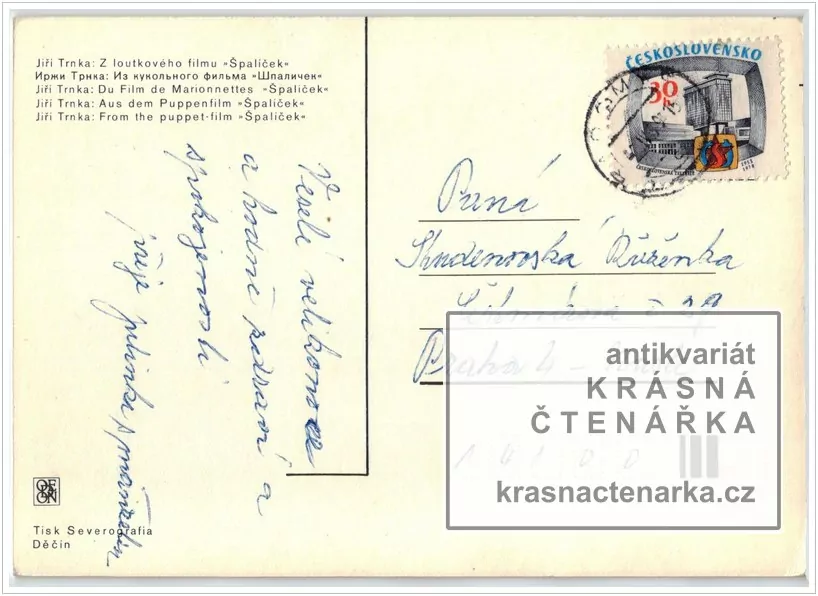 Jiří Trnka: Z loutkového filmu »Špalíček«
Иржи Трнка: Из кукольного фильма »Шпаличек«
Jiří Trnka: Du Film de Marionnettes »Špalíček«
Jiří Trnka: Aus dem Puppenfilm »Špalíček«
Jiří Trnka: From the puppet-film »Špalíček«
Veselé velikonoce
a hodně zdraví a
spokojenosti
přeje
ODEON
Tisk Severografia
Děčín
ČESKOSLOVENSKO
30
h
ČESKOSLOVENSKÁ TELEVIZE
1953
Paní
Růženka
Praha 4
antikvariát
KRÁSNÁ
ČTENÁŘKA
krasnactenarka.cz